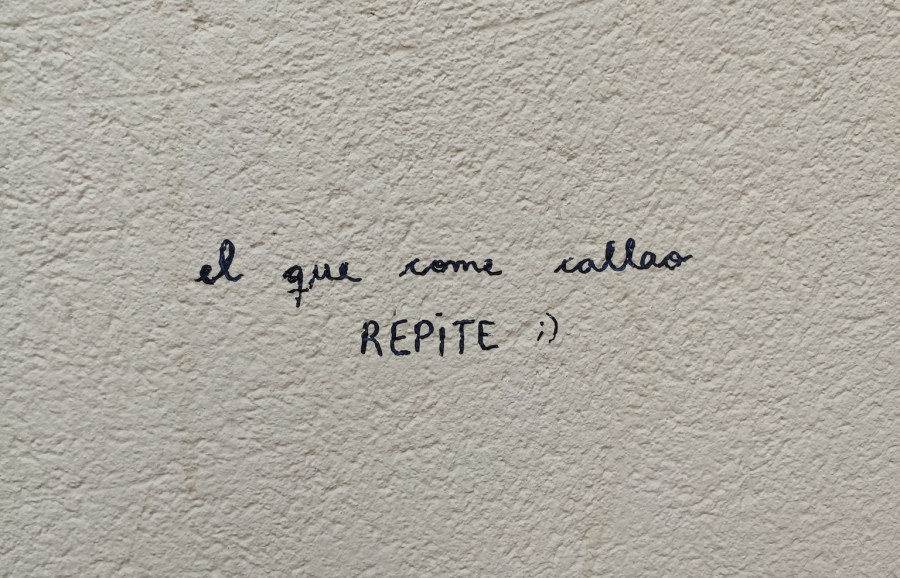 el que come callao
REPITE ;)